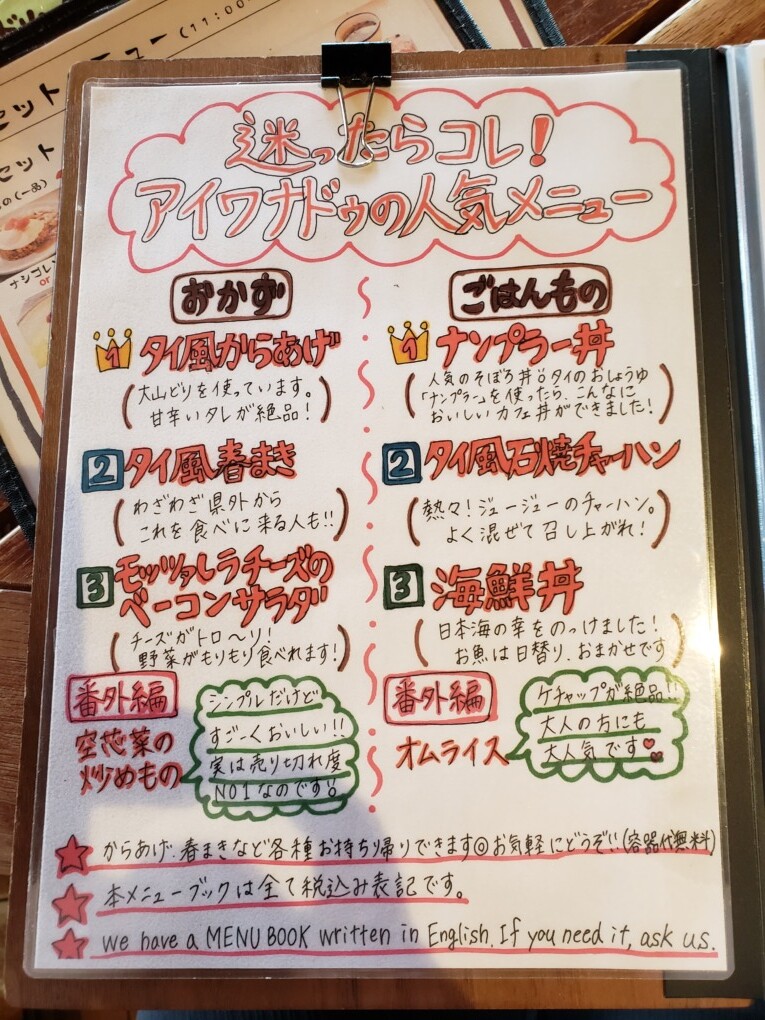 迷ったらコレ!
アイワナドゥの人気メニュー
おかず
1 タイ風からあげ
(大山どりを使っています。
甘辛いタレが絶品!)
2 タイ風春まき
(わざわざ県外から
これを食べに来る人も!!)
3 モッツァレラチーズの
ベーコンサラダ
(チーズがトロ〜リ!
野菜がもりもり食べれます!)
番外編
空芯菜の
炒めもの
シンプルだけど
すごーくおいしい!!
実は売り切れ度
NO1なのです!!
ごはんもの
1 ナンプラー丼
(人気のそぼろ丼!!タイのおしょうゆ
「ナンプラー」を使ったら、こんなに
おいしいカフェ丼ができました!)
2 タイ風石焼チャーハン
(熱々!ジュージューのチャーハン。
よく混ぜて召し上がれ!)
3 海鮮丼
(日本海の幸をのっけました!
お魚は日替り、おまかせです)
番外編
オムライス
ケチャップが絶品!!
大人の方にも
大人気です
★からあげ、春まきなど各種お持ち帰りできます◎お気軽にどうぞ!!(容器代無料)
★本メニューブックは全て税込み表記です。
★we have a MENU BOOK written in English. If you need it, ask us.
メニュー (11:00
セット
セット
の(一品)
ナシゴレン
or